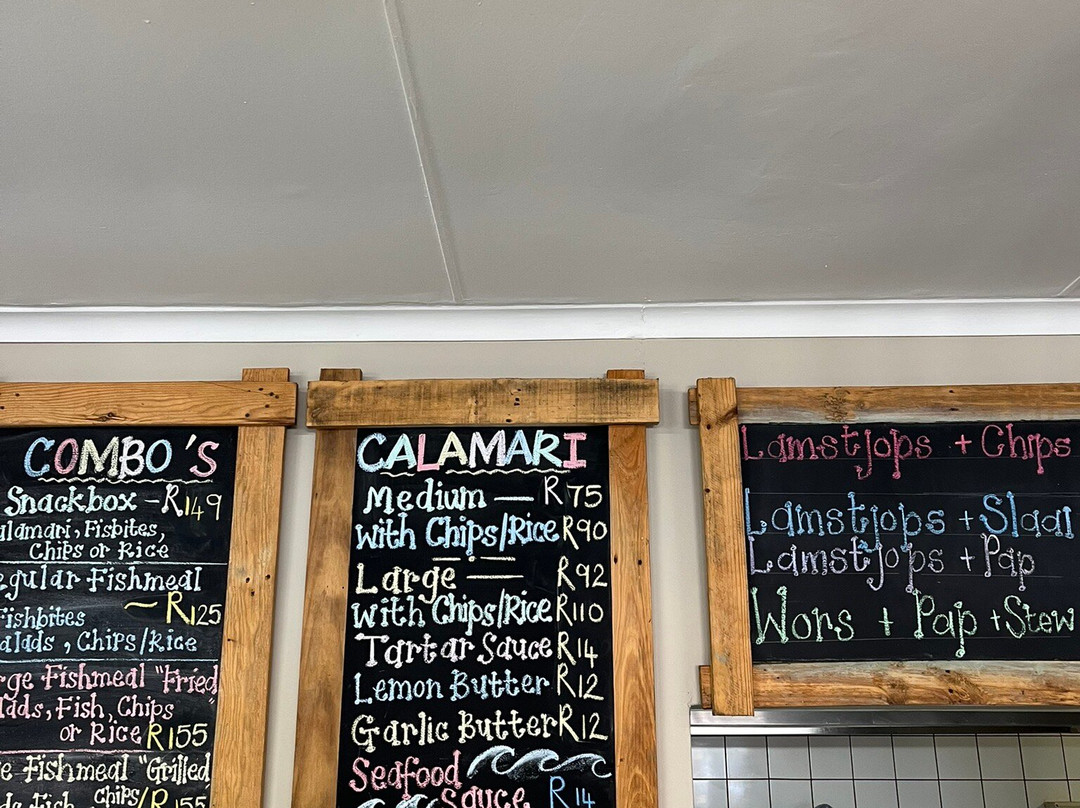 COMBO'S
Snackbox - R149
alamari, Fisbites,
Chips or Rice
egular Fishmeal
~ R125
Fishbites
alads, Chips/Rice
rge Fishmeal "Fried"
lads, Fish, Chips
or Rice R155
e Fishmeal "Grilled
ads Fish, Chips/ R155
CALAMARI
Medium — R75
with Chips/Rice R90
Large — R92
with Chips/Rice R110
Tartar Sauce R14
Lemon Butter R12
Garlic Butter R12
Seafood
Sauce R14
Lamstjops + Chips
Lamstjops + Slaai
Lamstjops + Pap
Wors + Pap + Stew